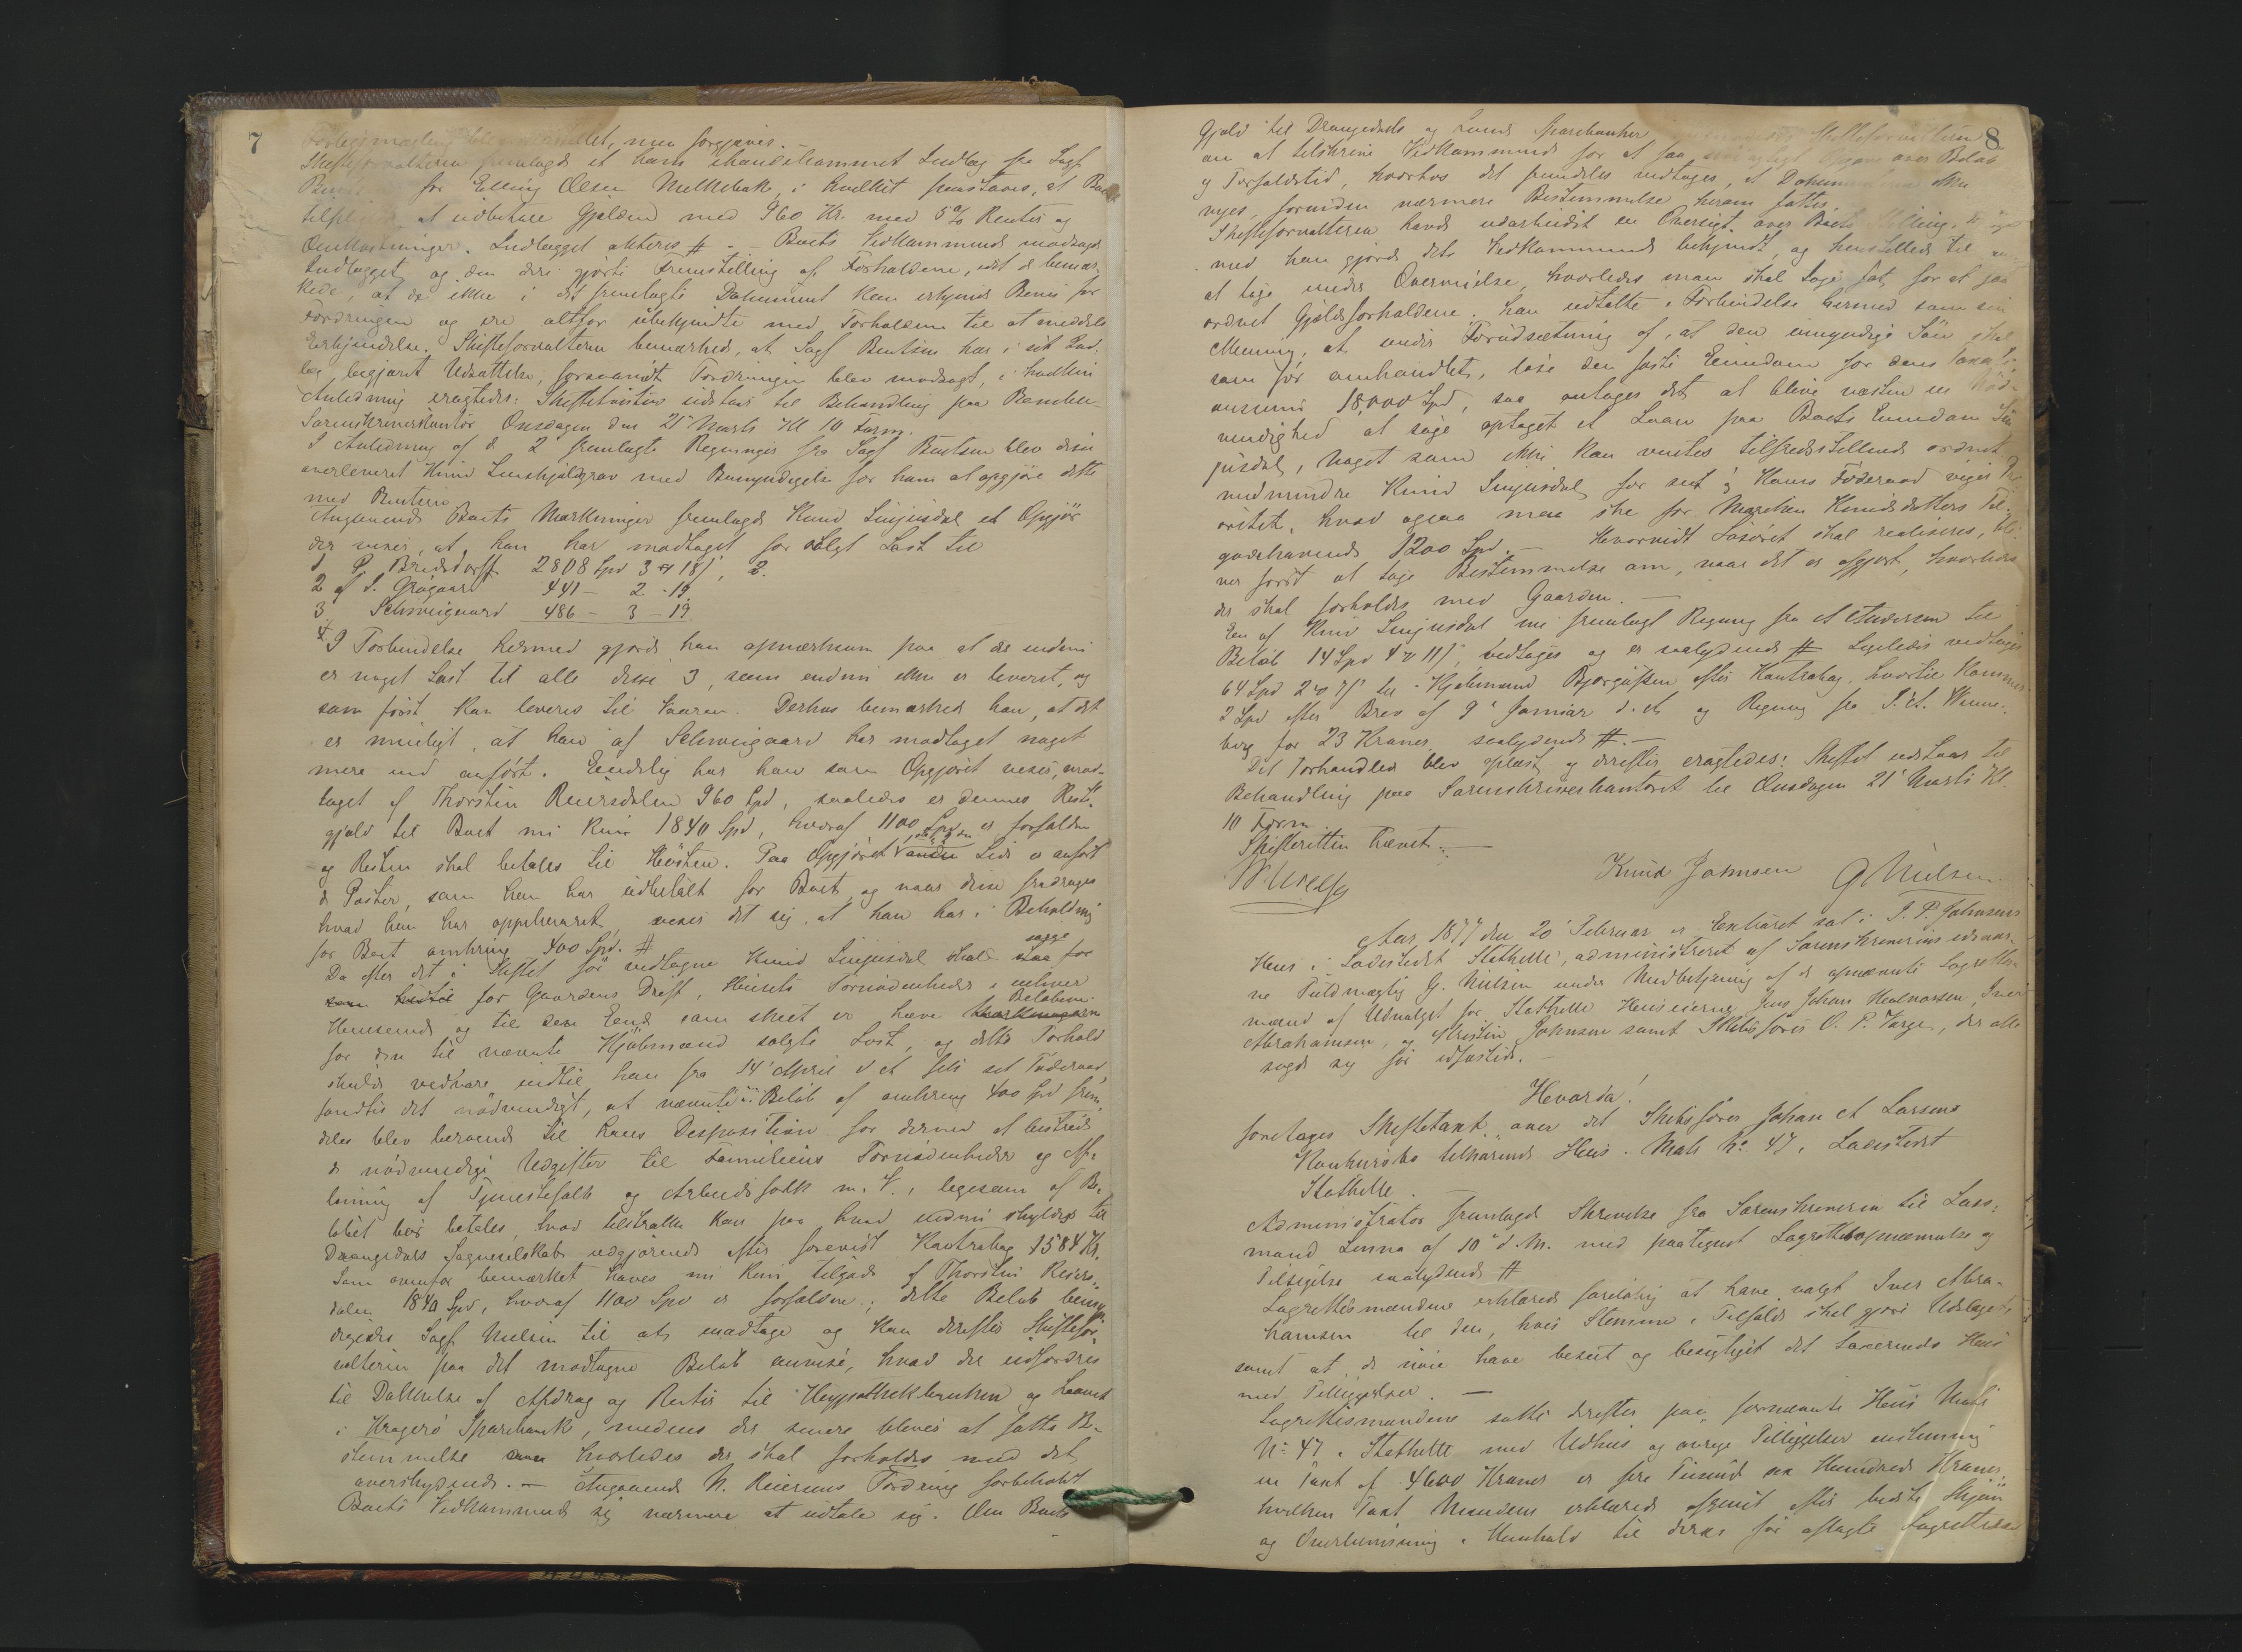 7
Forligsmægling blev, men forgjæves.
Skifteforvalteren fremlagde et ham ihændekommet Indlæg fra Sagf.
for Elling Olsen Melkebæk, i hvilket paastaaes, at Boet
at udbetale Gjælden med 960 Kr. med 5% Renter og
Omkostninger. Indlægget akteres # - Boets Vedkommende modsagde
Indlægget og den deri gjorte Fremstilling af Forholdene, idet de bemær-
kede, at de ikke i det fremlagte Dokument kan erkjende Bevis for
Fordringen og ere altfor ubekjendte med Forholdene til at meddele
Erkjendelse. Skifteforvalteren bemærkede, at Sagf Bentsen har i sit Ind-
læg begjæret Udsættelse, forsaavidt Fordringen blev modsagt, i hvilken
Anledning eragtedes: Skiftetvisten udstaar til Behandling paa Bamble
Sorenskriverkontor Onsdagen den 21 Marts Kl 10 Form.
I Anledning af de 2 fremlagte Regninger fra Sagf Bentsen blev disse
overleveret Knud med Bemyndigelse for ham at opgjøre dette
med Bentsen
Angaaende Boets Mærkninger fremlagde Knud et Opgjør
der viser, at han har modtaget for solgt Last til
1 P. Bredsdorff 2808 Spd 3 18/, 2.
2 af S. Grågaard 441 - 2 - 19
3 Schweigaard 486 - 3 - 19
# I Forbindelse hermed gjorde han opmærksom paa at der endnu
er noget Last til alle disse 3, som endnu ikke er leveret, og
som først kan leveres til Vaaren. Derhos bemærkede han, at det
er muligt, at han af Schweigaard har modtaget noget
mere end anført. Endelig har han som Opgjøret viser, mod-
taget af Thorsten Reiersdalen 960 Spd, saaledes er dennes Rest-
gjæld til Boet nu kun 1840 Spd, hvoraf 1100 Spd er forfalden
og Resten skal betales til Høsten. Paa Opgjørets anden Side er anført
de Poster, som han har udbetalt for Boet, og naar disse fradrages
hvad han har oppebaaret, viser det sig, at han har i Beholdning
for Boet omkring 400 Spd. #
Da efter det i Skiftet før vedtagne Knud skal sørge for
for Gaardens Drift, Husets Fornødenheder i enhver
Henseende og til den Ende som skeet er hæve Beløbene
for den til nævnte Kjøbmænd solgte Last, og dette Forhold
skulde vedvare indtil han fra 14 April d A fik sit Føderaad
fandtes det nødvendigt, at nævnte Beløb af omkring 400 Spd frem-
deles blev beroende til hans Disposition for dermed at bestride
de nødvendige Udgifter til Familiens Fornødenheder og Af-
lønning af Tjenestefolk og Arbeidsfolk m. V., ligesom af Be-
løbet bør betales, hvad tilstrække kan paa hvad endnu skyldes til
Drangedals Sagveselskab udgjørende efter forevist Kontrabog 1584 Kr.
Som ovenfor bemærket haves nu kun tilgode af Thorsten Reiers-
dalen 1840 Spd, hvoraf 1100 Spd er forfalden; dette Beløb bemyn-
digedes Sagf. Nielsen til at modtage og kan derefter Skiftefor-
valteren paa det modtagne Beløb anvise, hvad der udfordres
til Dækkelse af Afdrag og Renter til Hypothekbanken og Laanet
i Kragerø Sparebank, medens der senere bliver at fatte Be-
stemmelse om hvorledes der skal forholdes med det
overskydende. - Angaaende N. Reiersens Fordring forbeholdt
Boets Vedkommende sig nærmere at udtale sig. Om Boets
8
Gjæld til Drangedals og Lunds Sparebanker Skifteforvalteren
om at tilskrive Vedkommende for at faa Opgave over Beløb
og Forfaldstid, hvorhos det fremdeles vedtages, at ikke
nyes, forinden nærmere Bestemmelse herom fattes.
Skifteforvalteren havde udarbeidet en Oversigt over Boets Stilling,
med han gjorde dets Vedkommende bekjendt, og henstillede til
at tage under Overveielse, hvorledes man skal søge sat, for at faa
ordnet Gjældsforholdene. Han udtalte i Forbindelse hermed som sin
Mening, at under Forudsætning af, at den umyndige Søn skal
som før omhandlet, løse den faste Eiendom for dens Taxa-
tionssum 18,000 Spd, saa antages det at blive næsten en nød-
vendighed at søge optaget et Laan paa Boets Eiendom
, Noget som ikke kan ventes tilfredsstillende ordnet
medmindre Knud for sit og Kones Føderaad viger Pri-
oritet, hvad ogsaa maa ske for Maren Knudsdatters Til-
godehavende 1200 Spd. - Hvorvidt Løsøret skal realiseres, bli-
ver først at tage Bestemmelse om, naar det er afgjort, hvorledes
der skal forholdes med Gaarden. -
En af Knud nu fremlagt Regning fra A Andersen til
Beløb 14 Spd 4 11/, vedtages og er saalydende # Ligeledes vedtages
64 Spd 2 7/ til Kjøbmand efter Kontrabog, hvortil kommer
2 Spd efter Brev af 9 Januar d. A. og Regning fra T. A. Wenne-
berg for 23 Kroner, saalydende #. -
Det Forhandlede blev oplæst og derefter eragtedes: Skiftet udstaar til
Behandling paa Sorenskriverkontoret til Onsdagen 21 Marts Kl.
10 Form.
Skifteretten hævet. -
Knud Johnsen G Nielsen
Aar 1877 den 20 Februar er Extraret sat i T. P. Johnsens
Hus i Ladestedet Stathelle, administreret af Sorenskriverens edsvor-
ne Fuldmægtig G. Nielsen under Medbetjening af de opnævnte Lagrettes-
mænd af Udvalget for Stathelle Huseierne Jens Johan Halvorsen, Iver
Abrahamsen, og Kristen Johnsen samt Skibsfører O. P. Varge, der alle
sagde sig før edfæstede. -
Hvorda!
foretages Skiftetaxt over det Skibsfører Johan A Larsens
Konkursbo tilhørende Hus, Matr No. 47, Ladestedet
Stathelle.
Administrator fremlagde Skrivelse fra Sorenskriveren til Lens-
mand Linna af 10 d. M. med paategnet Lagrettesopnævnelse og
Tilsigelse saalydende #
Lagrettesmændene erklærede foreløbig at have valgt Iver Abra-
hamsen til den, hvis Stemme i Tilfælde skal gjøre Udslaget,
samt at de nøie have beseet og besigtiget det taxerende Hus
med Tilliggelser. -
Lagrettesmændene satte derefter paa fornævnte Hus Matr
No. 47 i Stathelle med Udhus og øvrige Tilliggelser enstemmig
en Taxt af 4600 Kroner er fire Tusind sex Hundrede Kroner,
hvilken Taxt Mændene erklærede afgivet efter bedste Skjøn
og Overbevisning i Henhold til deres før aflagte Lagrettesed